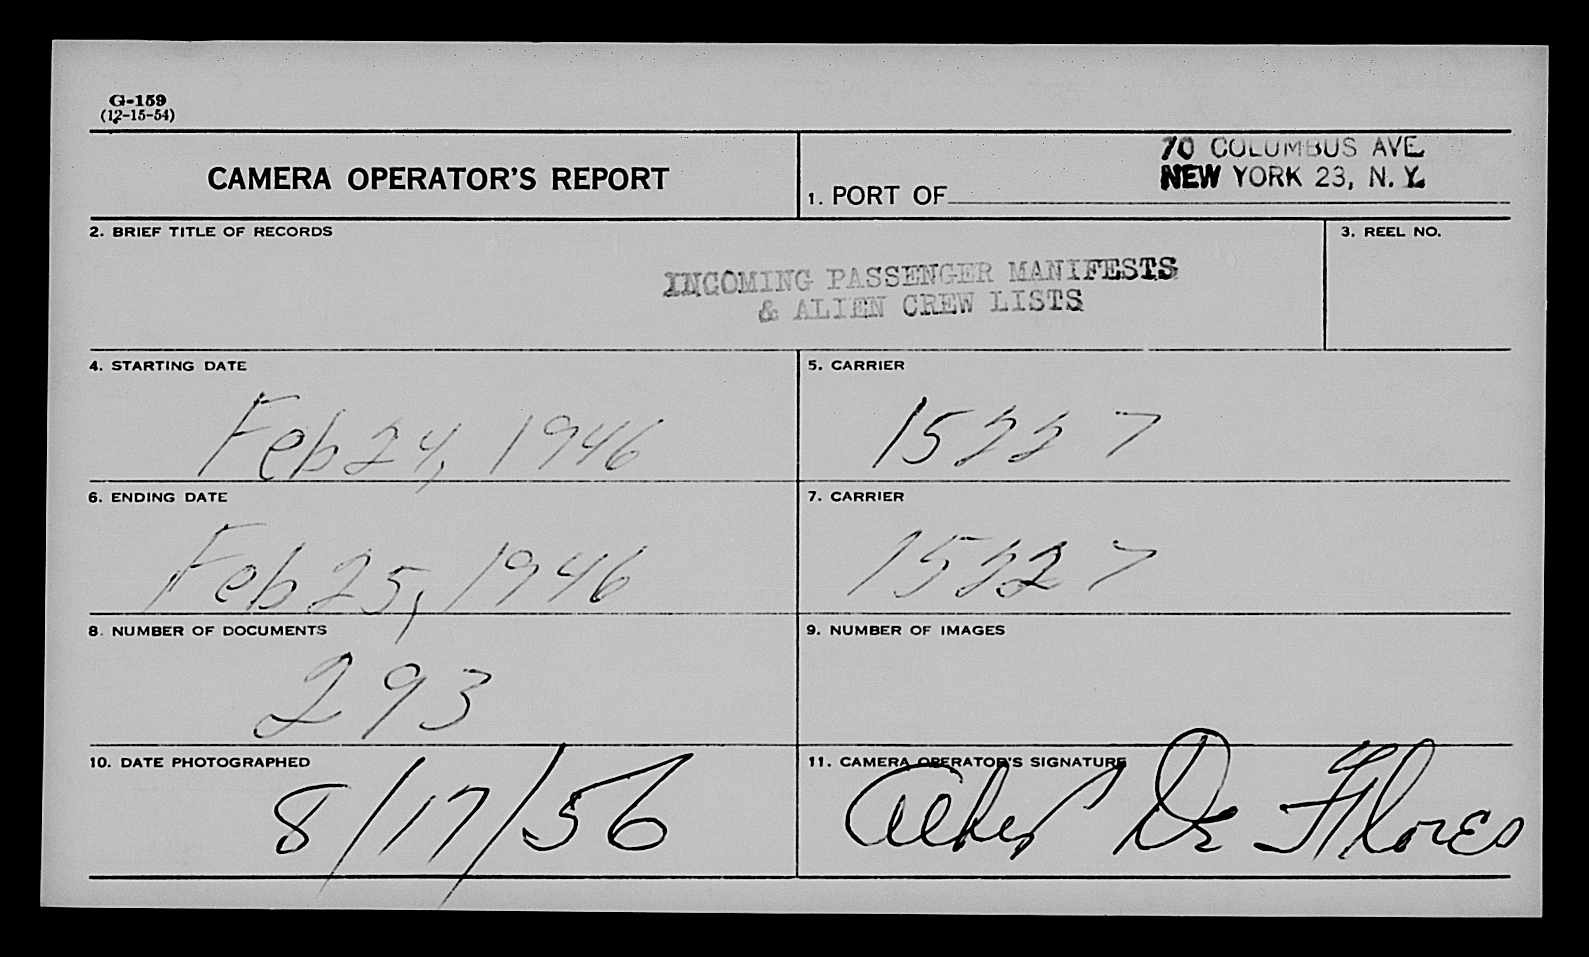 G-159
(12-15-54)
CAMERA OPERATOR'S REPORT
1. PORT OF
70 COLUMBUS AVE.
NEW YORK 23, N. Y.
2. BRIEF TITLE OF RECORDS
INCOMING PASSENGER MANIFESTS
& ALIEN CREW LISTS
3. REEL NO.
4. STARTING DATE
Feb 24, 1946
5. CARRIER
15227
6. ENDING DATE
Feb 25, 1946
7. CARRIER
15227
8. NUMBER OF DOCUMENTS
293
9. NUMBER OF IMAGES
10. DATE PHOTOGRAPHED
8/17/56
11. CAMERA OPERATOR'S SIGNATURE
Albert De Flores